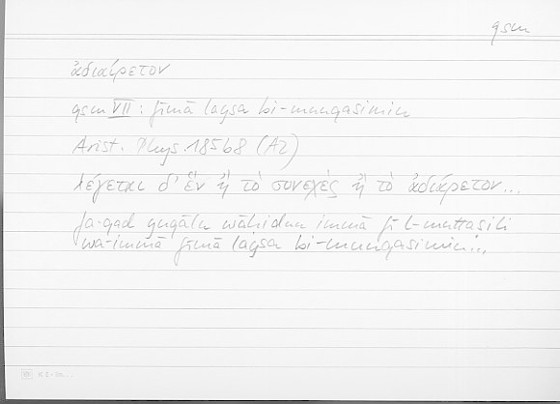 qsm
ἀδιαίρετον
qsm VII : fīmā laysa bi-munqasimin
Arist. Phys. 185b8 (A2)
λέγεται δ' ἓν ἢ τὸ συνεχὲς ἢ τὸ ἀδιαίρετον...
fa-qad yuqālu wāḥidun immā fī l-muttaṣili
wa-immā fīmā laysa bi-munqasimin...